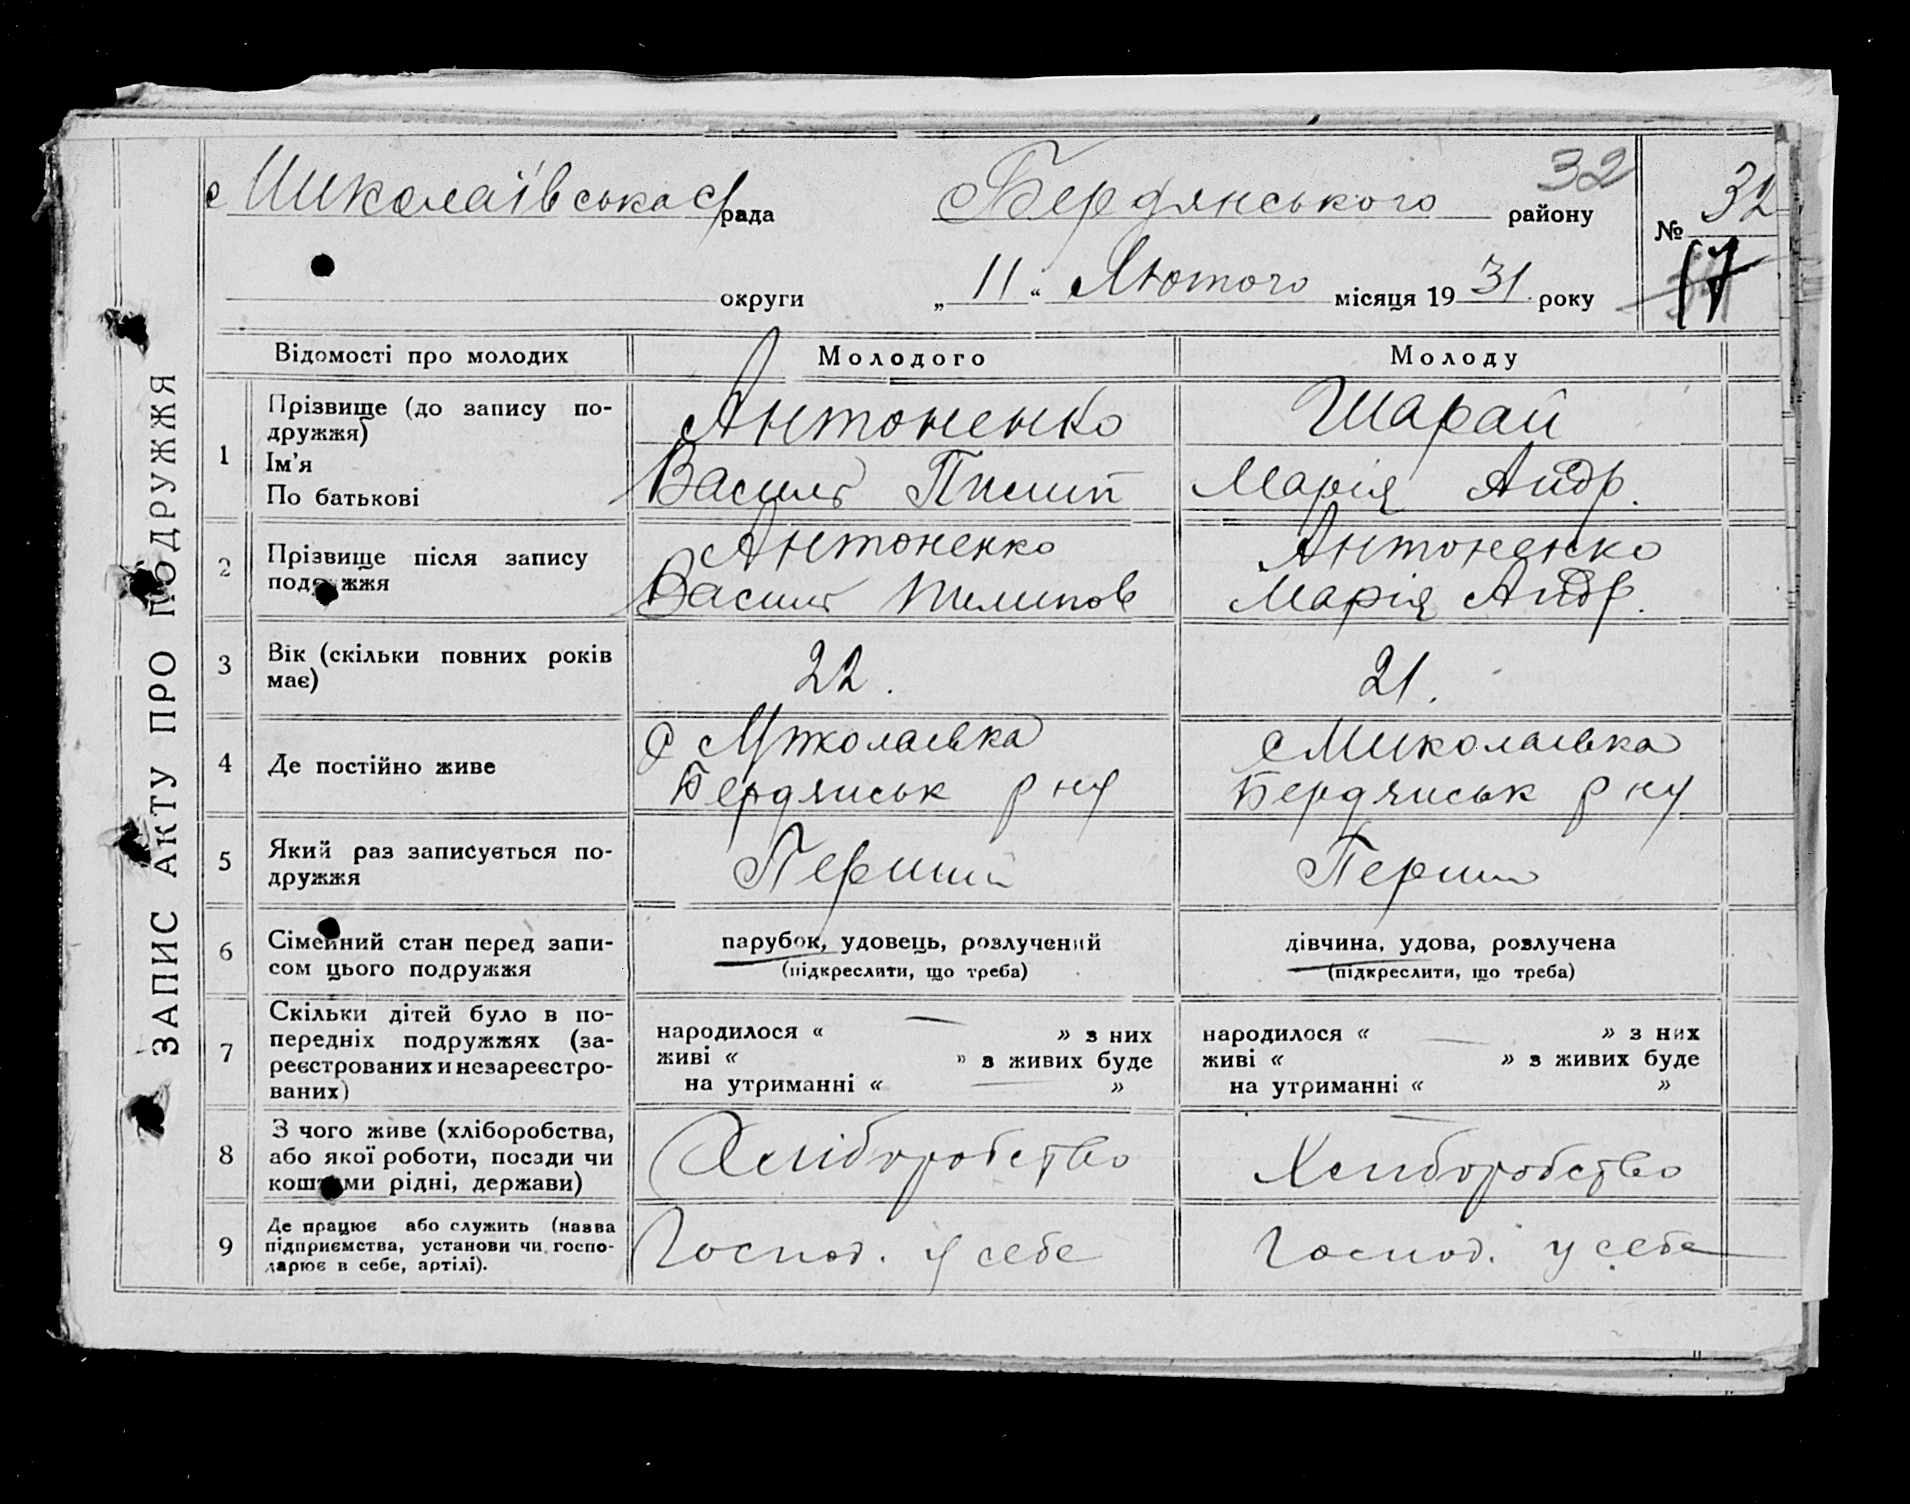 32
с Миколаївська с/рада Бердянського району № 32
17
округи „ 11 “ Лютого місяця 1931 року
ЗАПИС АКТУ ПРО ПОДРУЖЖЯ
Відомості про молодих Молодого Молоду
1 Прізвище (до запису по-
дружжя) Антоненко Шарай
Ім'я
По батькові Василь Пилип Марія Андр.
2 Прізвище після запису Антоненко Антоненко
подружжя Василь Пилипов Марія Андр.
3 Вік (скільки повних років
має) 22. 21.
4 Де постійно живе с Миколаївка с Миколаївка
Бердянськ р ну Бердянськ р ну
5 Який раз записується по-
дружжя Перший Перший
6 Сімейний стан перед запи- парубок, удовець, розлучений дівчина, удова, розлучена
сом цього подружжя (підкреслити, що треба) (підкреслити, що треба)
7 Скільки дітей було в по-
передніх подружжях (за- народилося « — » з них народилося « — » з них
реєстрованих и незареєстро- живі « » з живих буде живі « » з живих буде
ваних) на утриманні « — » на утриманні « — »
8 З чого живе (хліборобства,
або якої роботи, посади чи Хліборобство Хліборобство
коштами рідні, держави)
9 Де працює або служить (назва
підприємства, установи чи госпо- Господ. у себе Господ. у себе
дарює в себе, артілі).